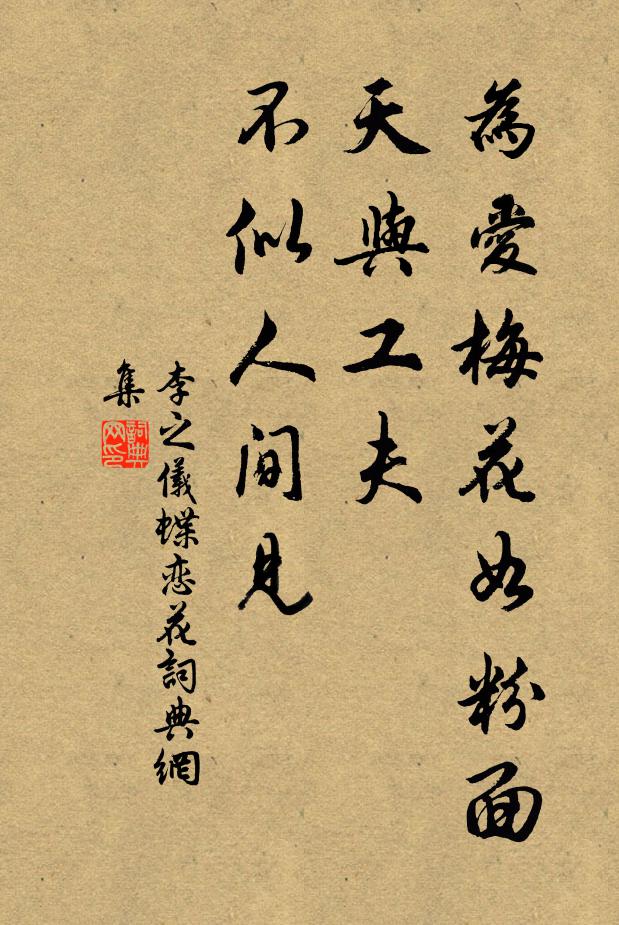 為愛梅花如粉面
天與工夫
不似人間見
李之儀蝶恋花詞典網
集
詞典網印